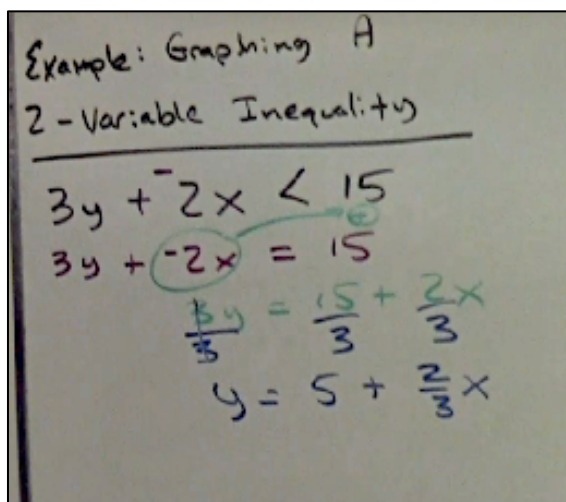 Example: Graphing A
2-Variable Inequality
3y + ⁻2x < 15
3y + ⁻2x = 15
+
3y/3 = 15/3 + 2x/3
y = 5 + 2/3 x